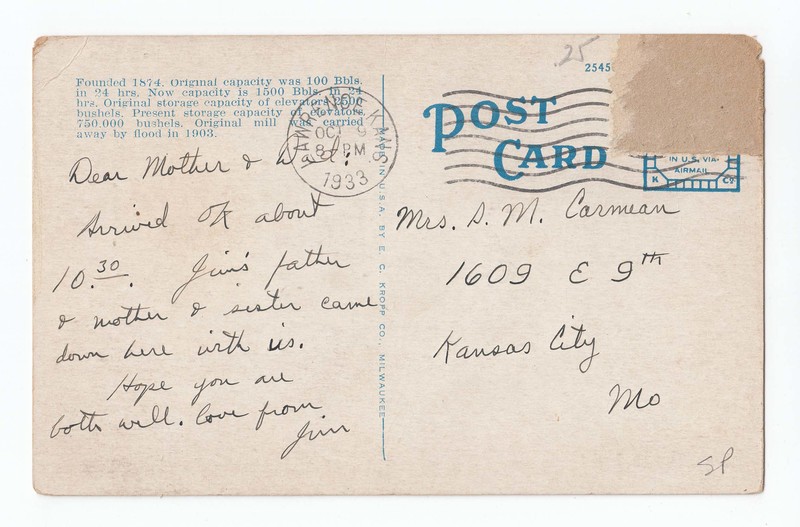 Founded 1874. Original capacity was 100 Bbls.
in 24 hrs. Now capacity is 1500 Bbls. in 24
hrs. Original storage capacity of elevators 2500
bushels. Present storage capacity of elevators,
750,000 bushels. Original mill was carried
away by flood in 1903.
Dear Mother & Dad:
Arrived OK about
10.30. Jim's father
& mother & sister came
down here with us.
Hope you are
both well. Love from
Jim
LAWRENCE KANS
OCT 9
8 PM
1933
MADE IN U.S.A. BY E. C. KROPP CO., MILWAUKEE
.25
2545
POST
CARD
IN U.S. VIA
AIRMAIL
K Co
Mrs. S. M. Carmean
1609 E 9th
Kansas City
Mo
SP